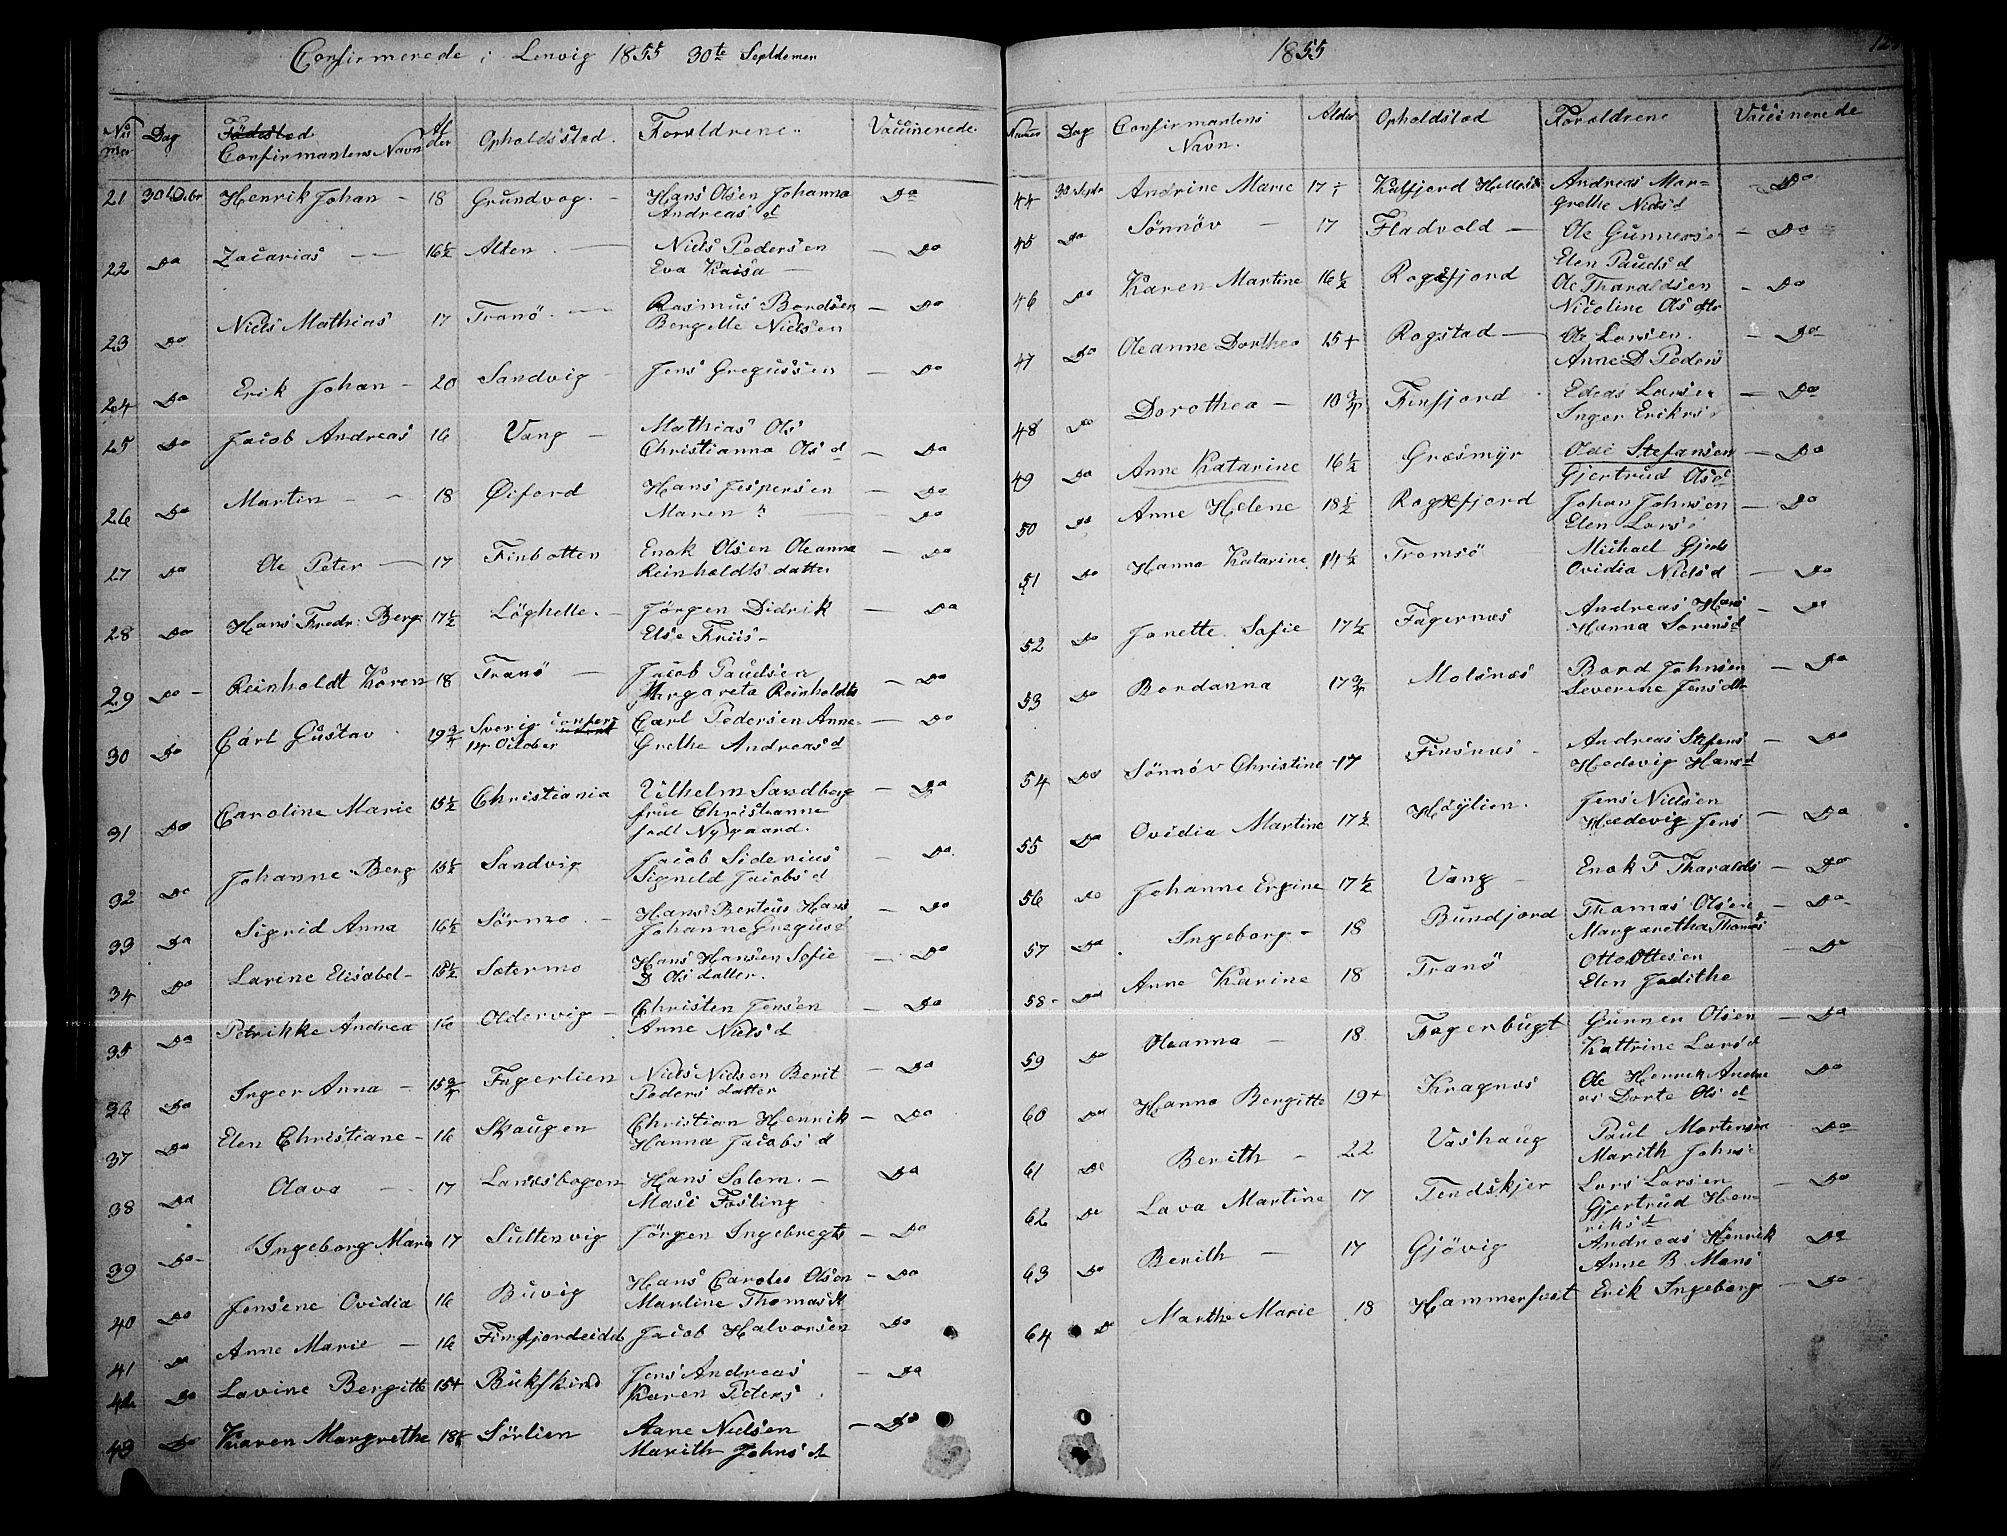 Confirmerede i Lenvig 1855 30te Septdemer
Nummer Dag Födested Confirmantens Navn Alder Opholdsstad. Foraldrene. Vaccinerede
21 Henrik Johan - 18 Grundvog. - Hans Olsen Johanna Do
Andreas d
22 Do Zacarias - - 16½ Alten. - Niels Pedersen - Do
Eva Kaisa -
23 Do Niels Mathias 17 Tranö. - Rasmus Bordsen - Do
Bergelle Nielsen
24 Do Erik Johan - 20 Sandvig - Jens Gregussen - Do
25 Do Jacob Andreas 16 Vang - Mathias Ols
Christianna Ols d - Do
26 Do Martin - - 18 Øiford Hans Jespersen - Do
Maren - Do
27 Do Ole Peter - 17 Finbotten Enok Olsen Oleanna - Do
Reinholdts datter
28 Do Hans Fredr: Berg 17½ Löghelle. - Jörgen Didrik - Do
Else Friis -
29 Do - Reinholdt Koren 18 Tranö - Jacob Paulsen
Margareta Reinholdts - Do
30 Do Carl Gustav 19¾ Sverig Carl Pedersen Anne - Do
14 October Grethe Andreas d
31 Do Caroline Marie 15½ Christiania Vilhelm Sandberg - Do
frue Christianne
født Nygaard.
32 Do Johanne Berg 15½ Sandvig Jacob Sidenius - Do.
Signeld Jacobs d
33 Do Sigrid Anna 16½ Sörmo - Hans Berteus Hans - Do
Johanne Gregus d
34 Do Larine Elisabet - 15½ Sætermo Hans Hansen Sofie - Do
D Ols datter.
35 Do Petrikke Andrea 16 Oldervig - Christen Jensen - Do
Anne Niels d
36 Do Inger Anna - 15¾ Fagerlien Niels Nielsen Berit - Do
Peders datter
37 Do Elen Christiane - 16 Skaugen Christian Henrik - Do
Hanna Jacobs d
38 Do Olava - 17 Lanesbogen Hans Salem. - Do
Masi Fosling
39 Do - Ingeborg Maria 17 Sultenvig Jörgen Ingebregts - Do
40 Do Jensene Ovidia 16 Buvig Hans Carolus Olson - Do
Martine Thomas dt
41 Do Anne Marie - 16 Finfjordeidet Jacob Halvorsen Do
42 Do Lavine Bergitte 15+ Bukskind Jens Andreas - Do
Karen Peters
43 Do Karen Margrethe 18½ Sörlien Aane Nielsen - Do
Marith Johns dt
1855
Numer Dag Confirmantens Navn. Alder Opholdstad Foraldrene Vaccinerede
44 30 Septr Andrine Marie 17 Kalfjord Andreas Mar= Do
grethe Niels d
45 Do Sönnöv - 17 Fladvold - Ole Gunners - Do
Elen Pauls d
46 Do Karen Martine 16½ Rogefjord Ole Tharaldsen - Do
Nicoline Ols dtr
47 Do Oleanne Dorthea 15+ Rogstad - Ole Larsen. - Do
Anne D Peders
48 Do Dorothea - Finfjord Larsen - Do
Inger Eriks
49 Do Anne Katarine 16½ Græsmyr Stefansen - Do
Gjertrud Ols d
50 Do Anne Helene 18½ Rogefjord Johan Johnsen - Do
Elen Lars
51 Do Hanna Katarine 14½ Tromsö Michael
Ovidia Niels d - Do
52 Do Janette. Sofie 17½ Fagernæs Andreas Hans - Do
Hanna Sorens d
53 Do Bordanna 17¾ Molsnæs Bord Johnsen - Do
Severine Jens dtr
54 Do Sönnöv Christine 17 Finsnæs - Andreas Stefens - Do
Hedevig Hans d
55 Do Ovidia Martine 17½ Höglien. Jens Nielsen
Hedevig Jens - Do
56 Do Johanne Ergine 17½ Vang - Enok T Tharalds - Do
57 Do Ingeborg - 18 Bundjord Thomas Olsen - Do
Margaretha Thomas d
58 - Do Anne Karine 18 Tranö Otto Ottesen - Do
Elen Judithe
59 Do Oleanna - 18 Fagerbugt Gunner Olsen - Do
Kattrine Lars d
60 Do Hanna Bergitte 19+ Kragnæs Ole Henrik Andre Do
as Dorte Ols d
61 Do Berith - 22 Vashaug Paul Mortensen Do
Marith Johns
62 Do Lava Martine 17 Tendskjer Lars Larsen - Do
Gjertrud Hen=
riks d
63 Do Berith - 17 Gjövig Andreas Henrik Do
Anne B. Mons
64 Do Marthe Marie 18 Hammerfest Erik Ingeborg - Do